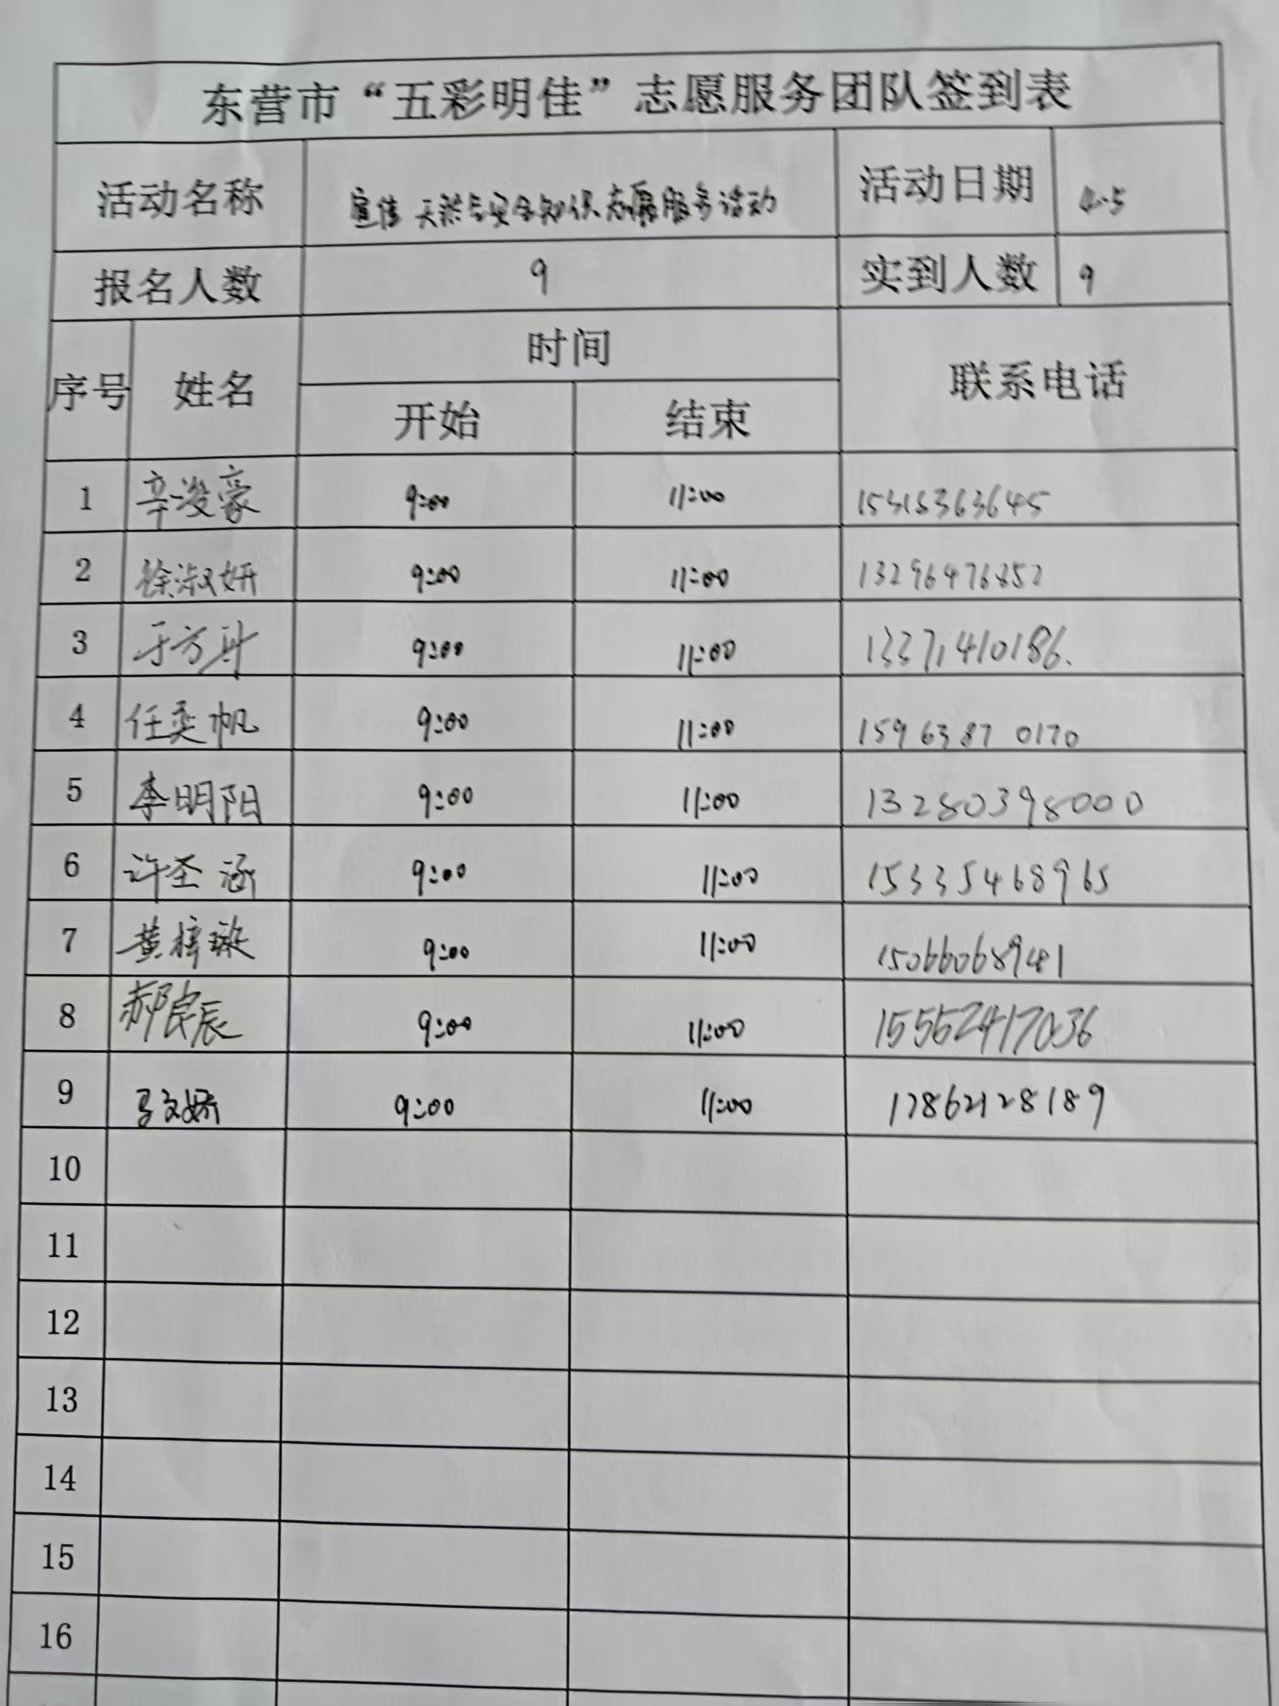 东营市“五彩明佳”志愿服务团队签到表
活动名称 宣传天然气安全知识志愿服务活动 活动日期 4.5
报名人数 9 实到人数 9
序号 姓名 时间 联系电话
开始 结束
1 辛浚豪 9:00 11:00 15315363645
2 徐淑妍 9:00 11:00 13296476852
3 于方舟 9:00 11:00 13371410186.
4 任奕帆 9:00 11:00 15963870170
5 李明阳 9:00 11:00 13280398000
6 许圣涵 9:00 11:00 15335468965
7 黄梓璇 9:00 11:00 15066068948 1
8 郝良辰 9:00 11:00 15552417036
9 马文娇 9:00 11:00 17862128189
10
11
12
13
14
15
16